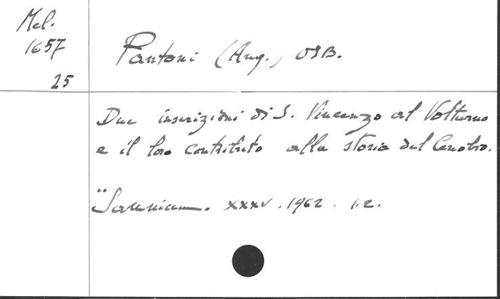 Mel.
1657
25
Pantoni (Ang.) OSB.
Due inscrizioni di S. Vincenzo al Volturno
e il loro contributo alla storia del Cenobio.
"Samnium. XXXV. 1962. 1-2.